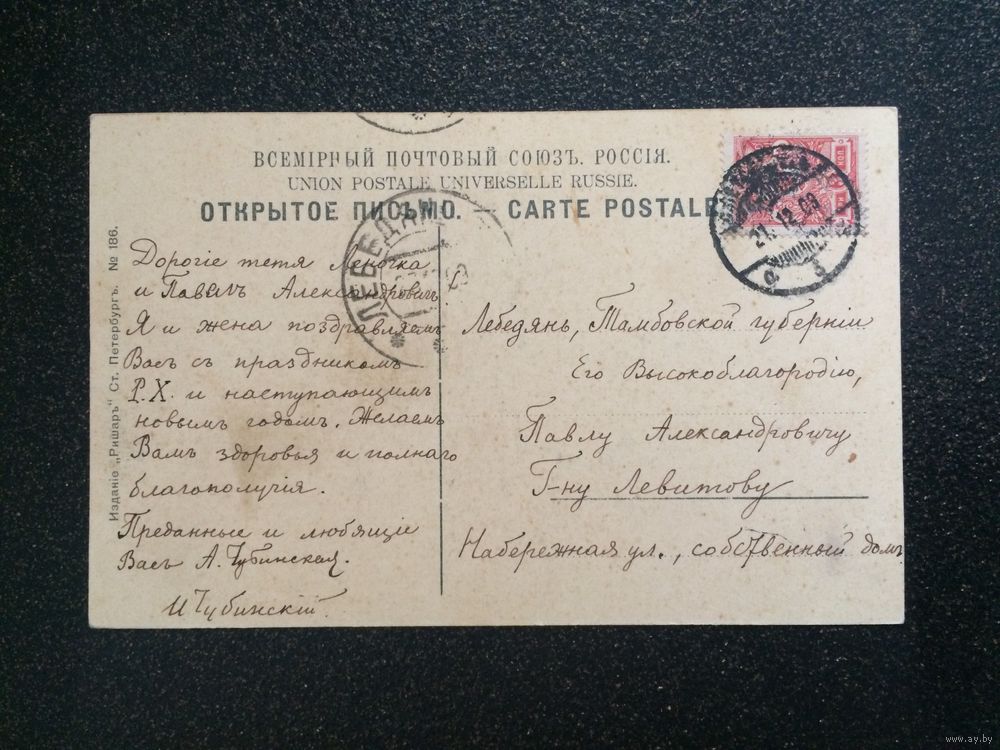 ВСЕМІРНЫЙ ПОЧТОВЫЙ СОЮЗЪ. РОССІЯ.
UNION POSTALE UNIVERSELLE RUSSIE.
ОТКРЫТОЕ ПИСЬМО. — CARTE POSTALE
ЛЕБЕДЯНЬ
21.12.09
КОП
Изданіе „Ришаръ" Ст. Петербургъ. № 186.
Дорогіе тетя Леночка
и Павелъ Александровичъ
Я и жена поздравляемъ
Васъ съ праздникомъ
Р.Х. и наступающимъ
новымъ годомъ. Желаемъ
Вамъ здоровья и полнаго
благополучія.
Преданные и любящіе
Васъ А. Чубинская.
И Чубинскій.
Лебедянь, Тамбовской губерніи
Его Высокоблагородію,
Павлу Александровичу
Г-ну Левитову
Набережная ул., собственный домъ
www.ay.by